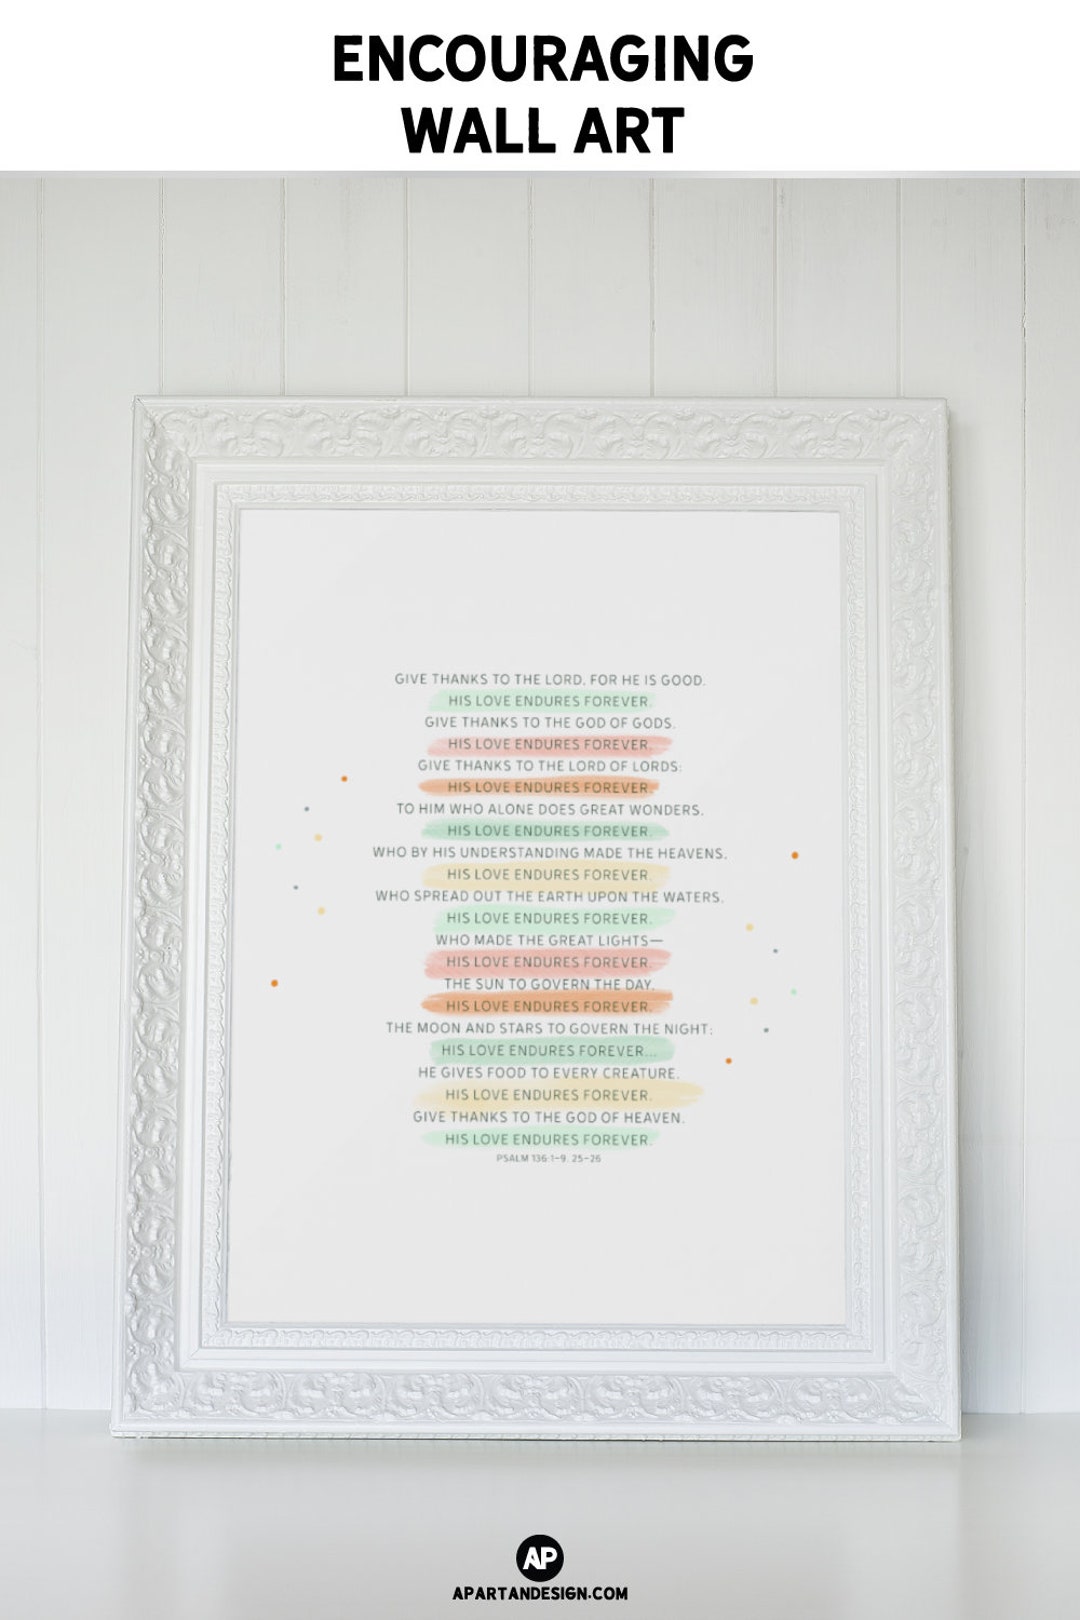 ENCOURAGING
WALL ART
GIVE THANKS TO THE LORD, FOR HE IS GOOD.
HIS LOVE ENDURES FOREVER.
GIVE THANKS TO THE GOD OF GODS.
HIS LOVE ENDURES FOREVER.
GIVE THANKS TO THE LORD OF LORDS:
HIS LOVE ENDURES FOREVER.
TO HIM WHO ALONE DOES GREAT WONDERS,
HIS LOVE ENDURES FOREVER.
WHO BY HIS UNDERSTANDING MADE THE HEAVENS,
HIS LOVE ENDURES FOREVER.
WHO SPREAD OUT THE EARTH UPON THE WATERS,
HIS LOVE ENDURES FOREVER.
WHO MADE THE GREAT LIGHTS—
HIS LOVE ENDURES FOREVER.
THE SUN TO GOVERN THE DAY,
HIS LOVE ENDURES FOREVER.
THE MOON AND STARS TO GOVERN THE NIGHT;
HIS LOVE ENDURES FOREVER...
HE GIVES FOOD TO EVERY CREATURE.
HIS LOVE ENDURES FOREVER.
GIVE THANKS TO THE GOD OF HEAVEN.
HIS LOVE ENDURES FOREVER.
PSALM 136:1-9, 25-26
AP
APARTANDESIGN.COM